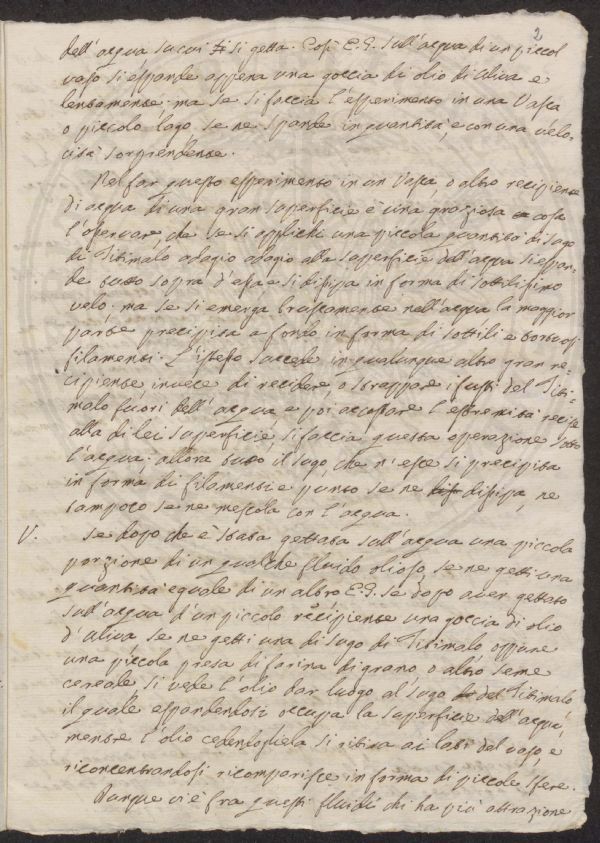 2
dell'acqua su cui si getta. Così E.G. sull'acqua di un piccol
vaso si espande appena una goccia di olio di uliva e
lentamente; ma se si faccia l'esperimento in una Vasca
o piccolo lago se ne spande in quantità, e con una velo-
cità sorprendente.
Nel far questo esperimento in un Vasca o altro recipiente
di acqua di una gran superficie è una graziosa cosa
l'osservare, che se si applichi una piccola quantità di sugo
di Titimalo adagio adagio alla superficie dell'acqua si espan-
de tutto sopra d'essa e si dissipa in forma di sottilissimo
velo. ma se si emerga bruscamente nell'acqua la maggior
parte precipita a fondo in forma di sottili e tortuosi
filamenti. L'istesso succede in qualunque altro gran re-
cipiente invece di recidere, o strappare i fusti del Titi-
malo fuori dell'acqua, e poi accostare l'estremità recise
alla di lei superficie, si faccia questa operazione sotto
l'acqua: allora tutto il sugo che n'esce si precipita
in forma di filamenti e punto se ne dissipa, ne
tampoco se ne mescola con l'acqua.
V. Se dopo che è stata gettata sull'acqua una piccola
porzione di un qualche fluido olioso, se ne getti una
quantità eguale di un altro E.G. se dopo aver gettato
sull'acqua d'un piccolo recipiente una goccia di olio
d'uliva se ne getti una di sugo di Titimalo oppure
una piccola presa di farina di grano o altro seme
cereale si vede l'olio dar luogo al sugo del Titimalo
il quale espandendosi occupa la superficie dell'acqua,
mentre l'olio cedendogliela si ritira ai lati del vaso, e
riconcentrandosi ricomparisce in forma di piccole sfere.
Dunque vi è fra questi fluidi chi ha più attrazione